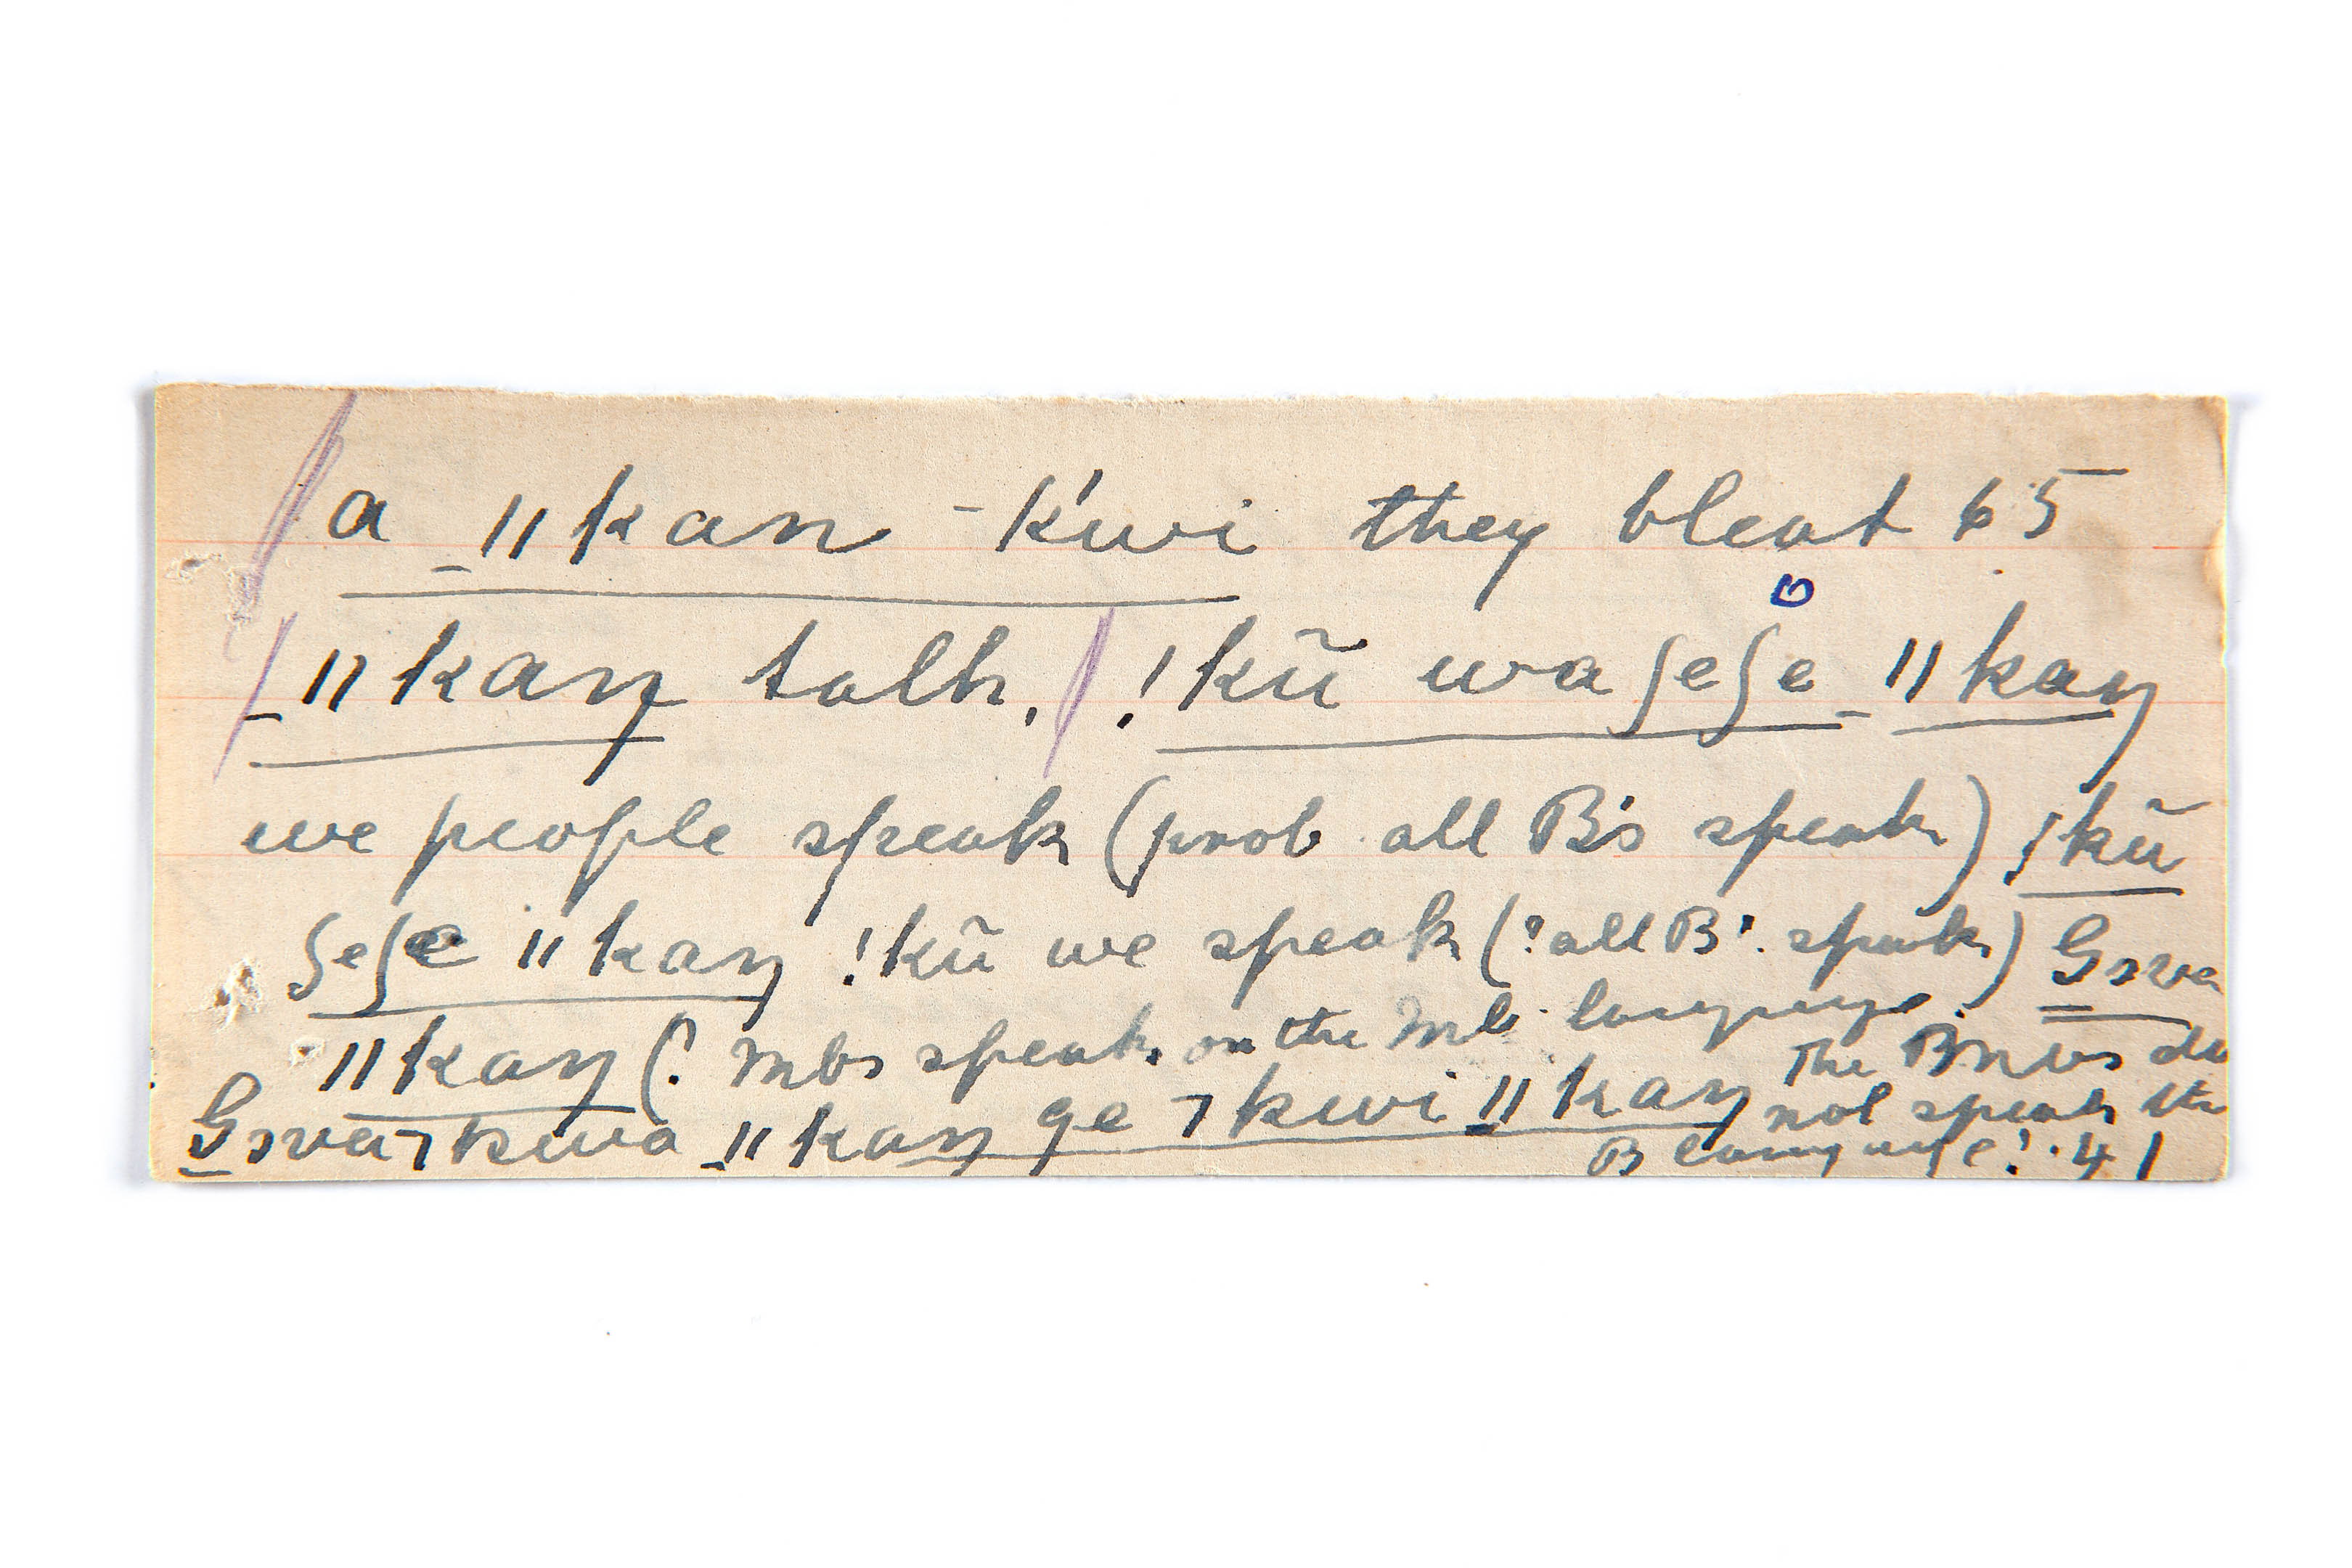 a _ǁkan -k'wi they bleat 65
_ǁkaŋ talk, !kũ waʃeʃe _ǁkaŋ
we people speak (prob all B's speak) !kũ
ʃeʃe ǁkaŋ !kũ we speak (? all B'. speak)
ǁkaŋ (? Mbs speak, on the Mb. language. The do
_ǁkaŋ ge ¬kwi _ǁkaŋ not speak the
B language! . 41